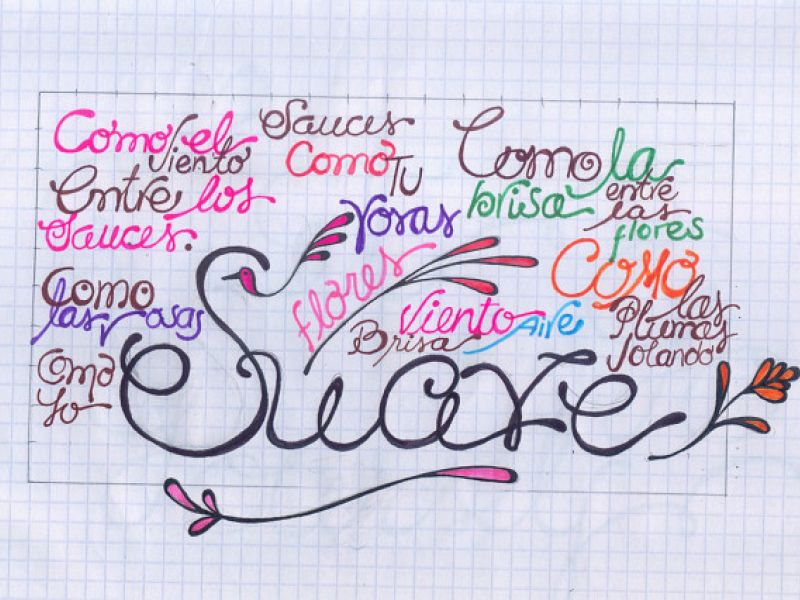 Como el
viento
Entre los
Sauces.
Sauces
Como
Tu
rosas
Como la
brisa
entre
las
flores
Como
las rosas
flores
Viento
Brisa
Aire
Como
las
Plumas
volando
Como
Yo
Suave